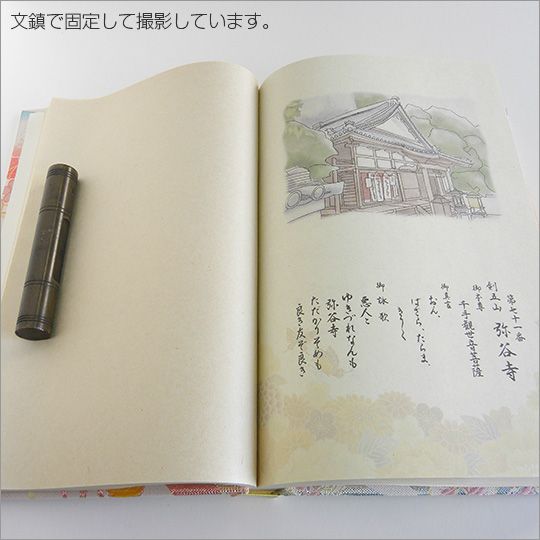 文鎮で固定して撮影しています。
第七十一番
剣五山 弥谷寺
御本尊
千手観世音菩薩
御真言
おん、
ばさら、たらま、
きりく
御詠歌
悪人と
ゆきづれなんも
弥谷寺
ただかりそめも
良き友ぞ良き